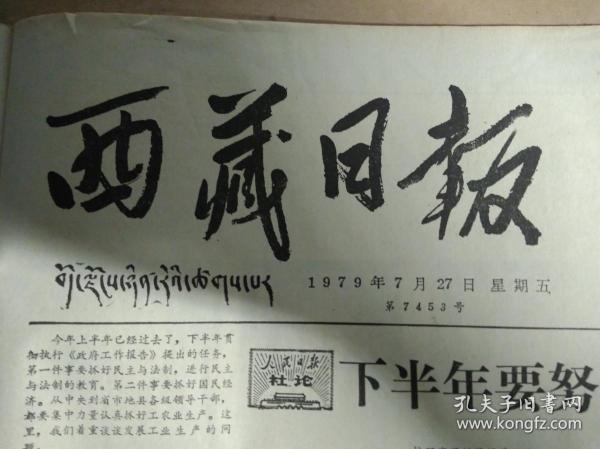 西藏日报
1979年7月27日 星期五
第7453号
今年上半年已经过去了，下半年贯
彻执行《政府工作报告》提出的任务，
第一件事要抓好民主与法制，进行民主
与法制的教育。第二件事要抓好国民经
济。从中央到省市地县各级领导干部，
都要集中力量认真抓好工农业生产。这
里，我们着重谈谈发展工业生产的问
题。
人民日报
社论
下半年要努
孔夫子旧书网
www.kongfz.com